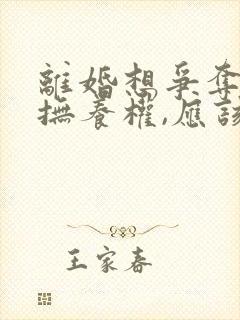 離婚想爭奪
撫養權,應該
王家春